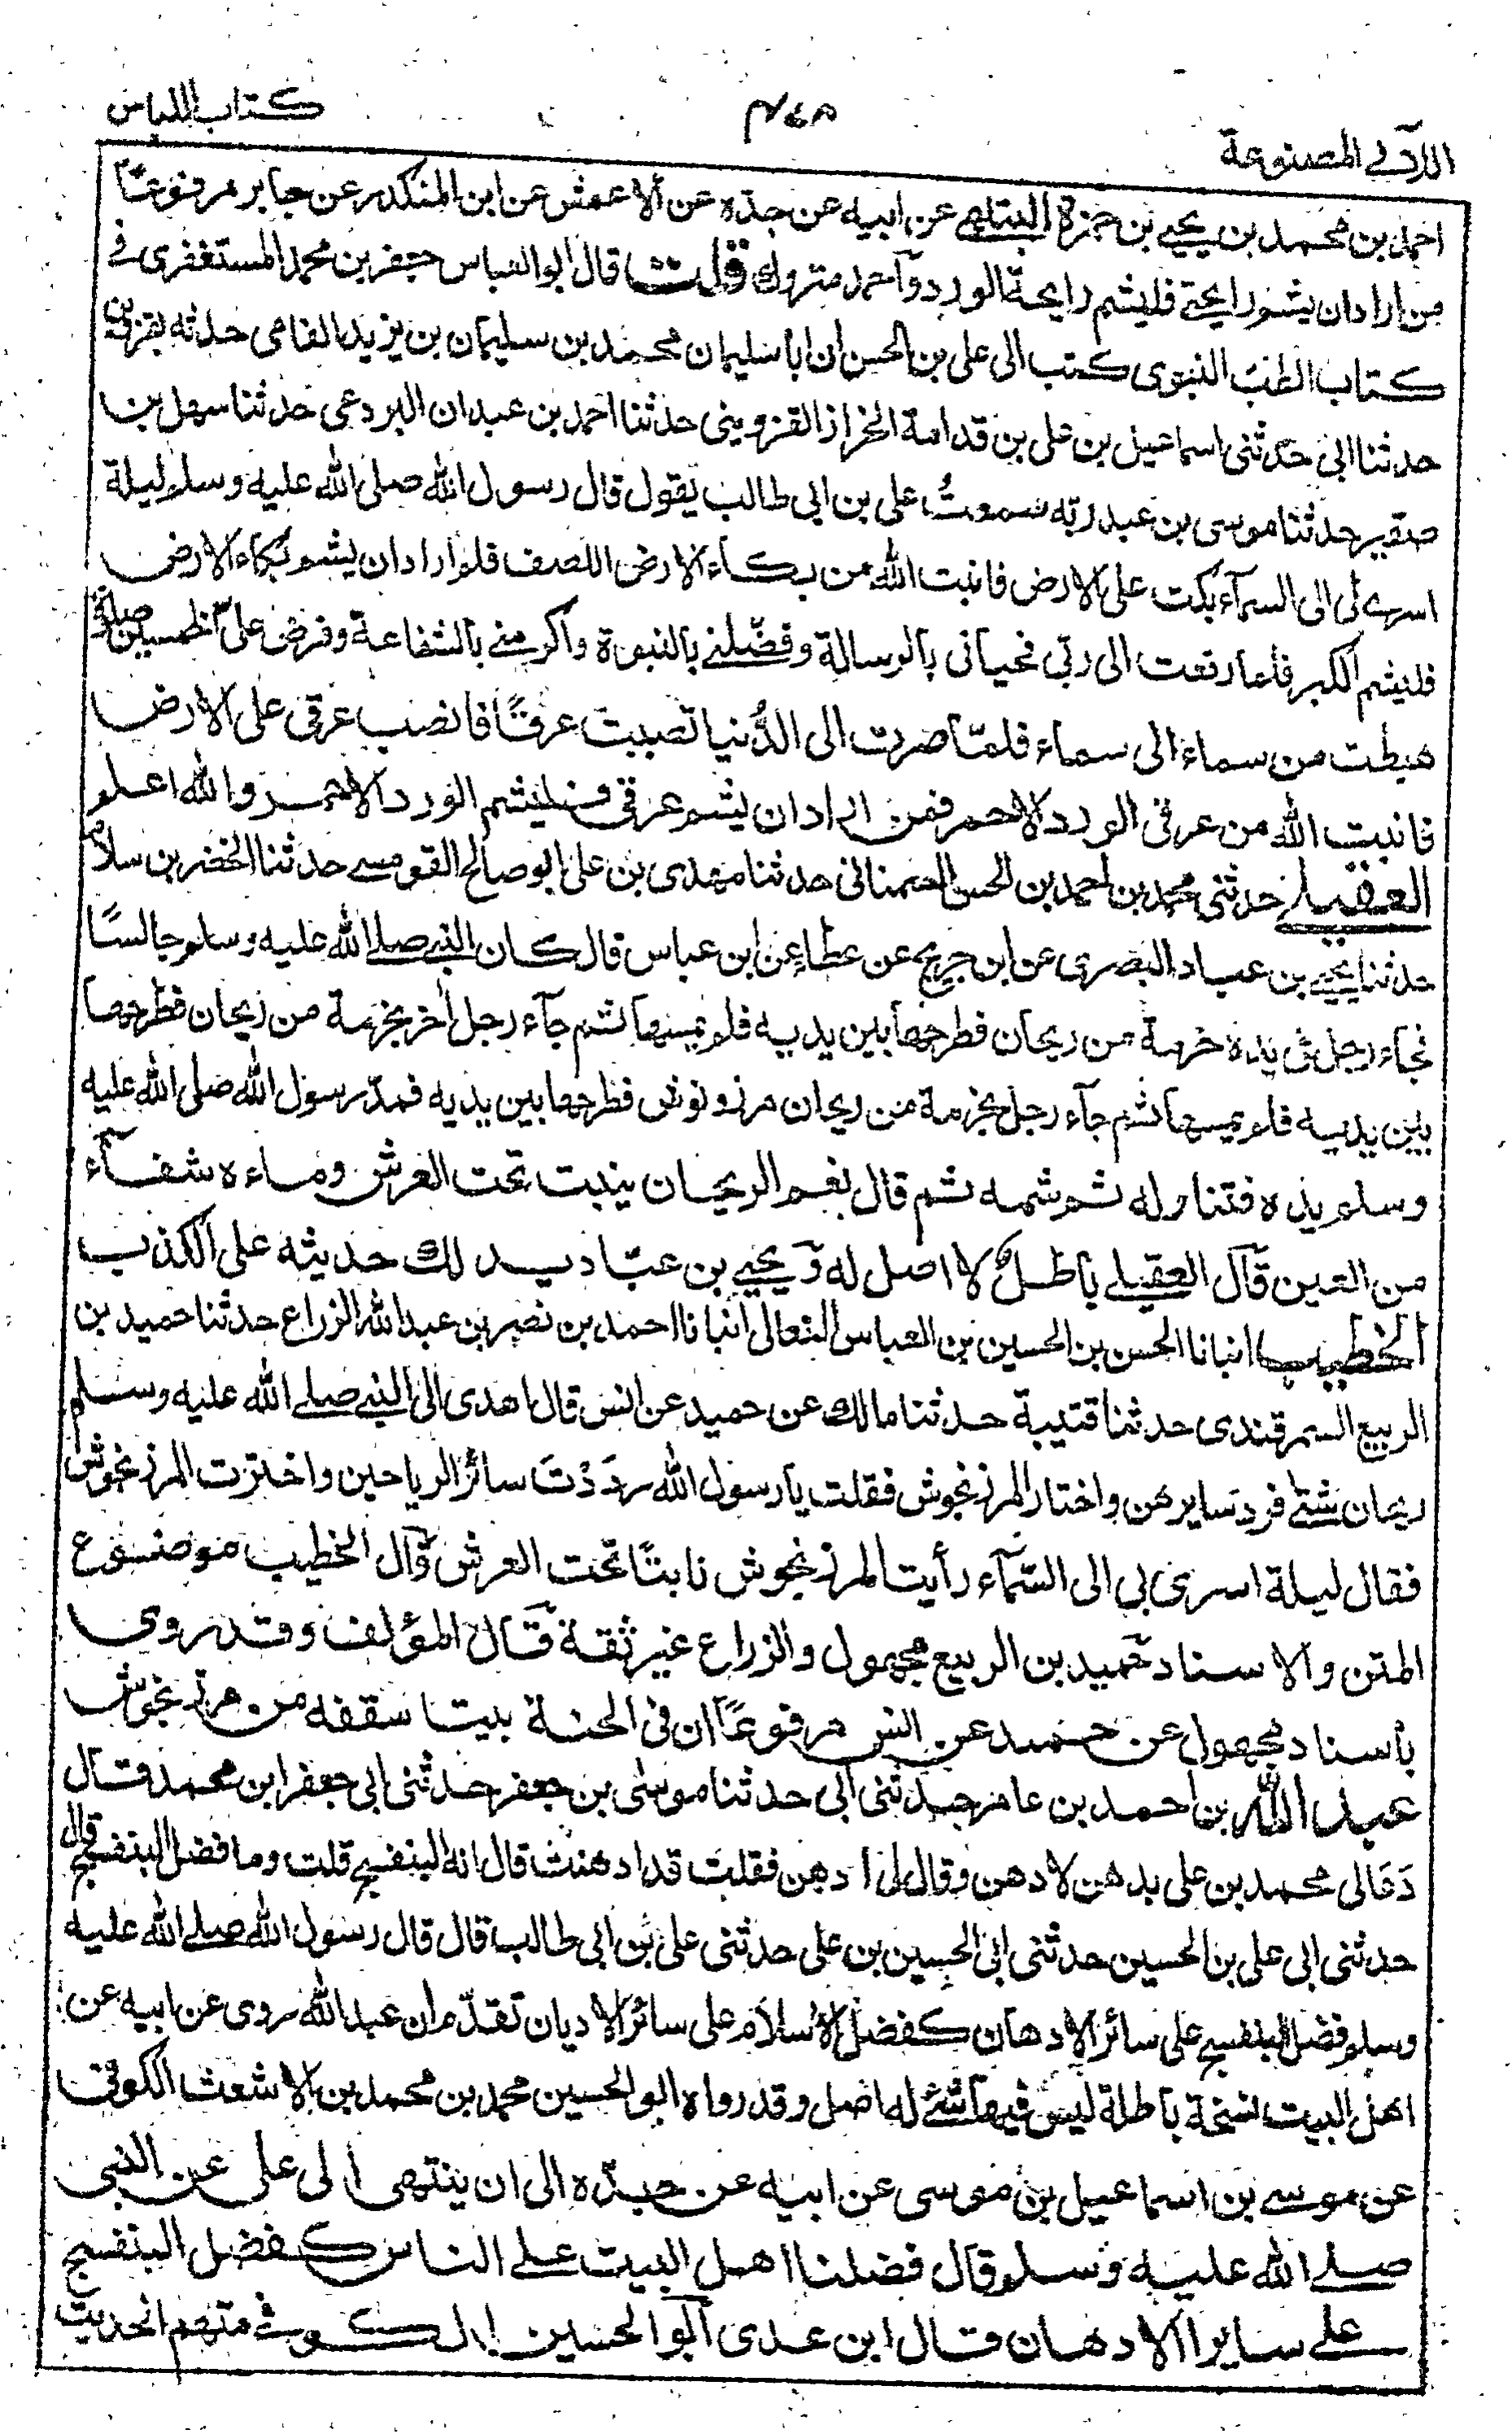 كتاب اللباس
اللآلى المصنوعة
احمد بن محمد بن يحيے بن حمزة البتلهى عن ابيه عن جده عن الاعمش عن ابن المنكدر عن جابر مرفوعًا
من اراد ان يشم رايحتے فليشم رايحة الورد وآحمد متروك قلت قال ابو العباس جعفر بن محمد المستغفرى فے
كتاب الطب النبوى كتب الى على بن الحسن ان ابا سليمان محمد بن سليمان بن يزيد الفامى حدثه بقزوين
حدثنا ابى حدثنى اسماعيل بن على بن قدامة الخراز القزوينى حدثنا احمد بن عبدان البردعى حدثنا سهل بن
صقير حدثنا موسى بن عبد ربه سمعتُ على بن ابى طالب يقول قال رسول الله صلى الله عليه وسلم ليلة
اسرى بى الى السمآء بكت على الارض فانبت الله من بكآء الارض اللصف فلو اراد ان يشم بكاء الارض
فليشم الكبر فلما رفعت الى ربى فحيانى بالرسالة وفضّلنے بالنبوة واكرمنے بالشفاعة وفرض علىّ الخمسين صلوة
هبطت من سماء الى سماء فلمّا صرت الى الدُّنيا تصببت عرقًا فانصب عرقى على الارض
فانبت الله من عرقى الورد الاحمر فمن اراد ان يشم عرقى فليشم الورد الاحمر والله اعلم
العقيلے حدثنى محمد بن احمد بن الحسن السمنانى حدثنا مهدى بن على ابو صالح القومسے حدثنا الخضر بن سلام
حدثنا يحيے بن عباد البصرى عن ابن جريج عن عطاء عن ابن عباس قال كان النبے صلے الله عليه وسلم جالسًا
فجاء رجل فى يده حزمة من ريحان فطرحها بين يديه فلم يمسها ثم جآء رجل آخر بحزمة من ريحان فطرحها
بين يديه فلم يمسها ثم جآء رجل بحزمة من ريحان مرزونوش فطرحها بين يديه فمدّ رسول الله صلى الله عليه
وسلم يده فتناوله ثم شمه ثم قال نعم الريحان ينبت تحت العرش وماءه شفآء
من العين قآل العقيلے باطل لا اصل له وَيحيے بن عبّاد يدلك حديثه على الكذب
الخطيب انبانا الحسن بن الحسين بن العباس النعالى انبانا احمد بن نصر بن عبد الله الزراع حدثنا حميد بن
الربيع السمرقندى حدثنا قتيبة حدثنا مالك عن حميد عن انس قال اهدى الى النبے صلے الله عليه وسلم
ريحان شتے فرد سايرهن واختار المرزنجوش فقلت يا رسول الله رَدَدْتَ سائر الرياحين واخترت المرزنجوش
فقال ليلة اسرى بى الى السّمآء رأيت المرزنجوش نابتًا تحت العرش قآل الخطيب موضوع
المتن والاسناد حميد بن الربيع مجهول والزراع غير ثقة قآل المؤلف وقد روى
باسناد مجهول عن حميد عن انس مرفوعًا ان فى الجنة بيتا سقفه من مرزنجوش
عبد الله بن احمد بن عامر حدثنى ابى حدثنا موسى بن جعفر حدثنى ابى جعفر ابن محمد قال
دَعَالى محمد بن على بدهن لادهن وقال لى ادهن فقلت قد ادهنت قال انه البنفسج قلت وما فضل البنفسج قال
حدثنى ابى على بن الحسين حدثنى ابى الحسين بن على حدثنى على بن ابى طالب قال قال رسول الله صلے الله عليه
وسلم فضل البنفسج على سائر الادهان كفضل الاسلام على سائر الاديان تقدّم ان عبد الله روى عن ابيه عن
اهل البيت نسخة باطلة ليس فيها شئے له اصل وقد رواه ابو الحسين محمد بن محمد بن الاشعث الكوفى
عن موسے بن اسماعيل بن موسى عن ابيه عن جدّه الى ان ينتهى الى على عن النبى
صلے الله عليه وسلم قال فضلنا اهل البيت علے الناس كفضل البنفسج
علے ساير الادهان قال ابن عدى آبو الحسين الكوفے متهم الحديث